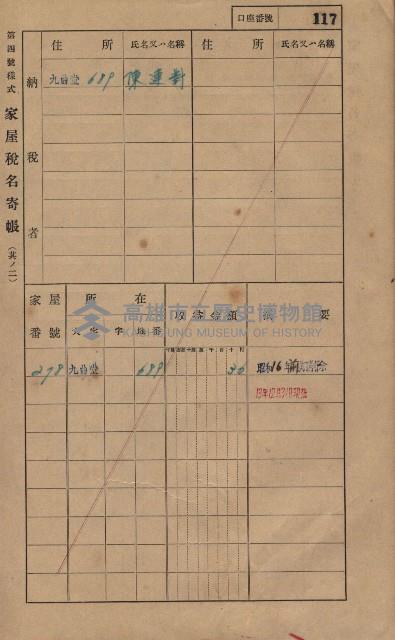 口座番號 117
第四號樣式 家屋稅名寄帳(其ノ二)
納稅者
住所 氏名又ハ名稱 住所 氏名又ハ名稱
九曲堂 689 陳連對
家屋番號 所在 收益金額 摘要
大字 字 地番
278 九曲堂 689 36 昭和16年
高雄市立歷史博物館
KAOHSIUNG MUSEUM OF HISTORY